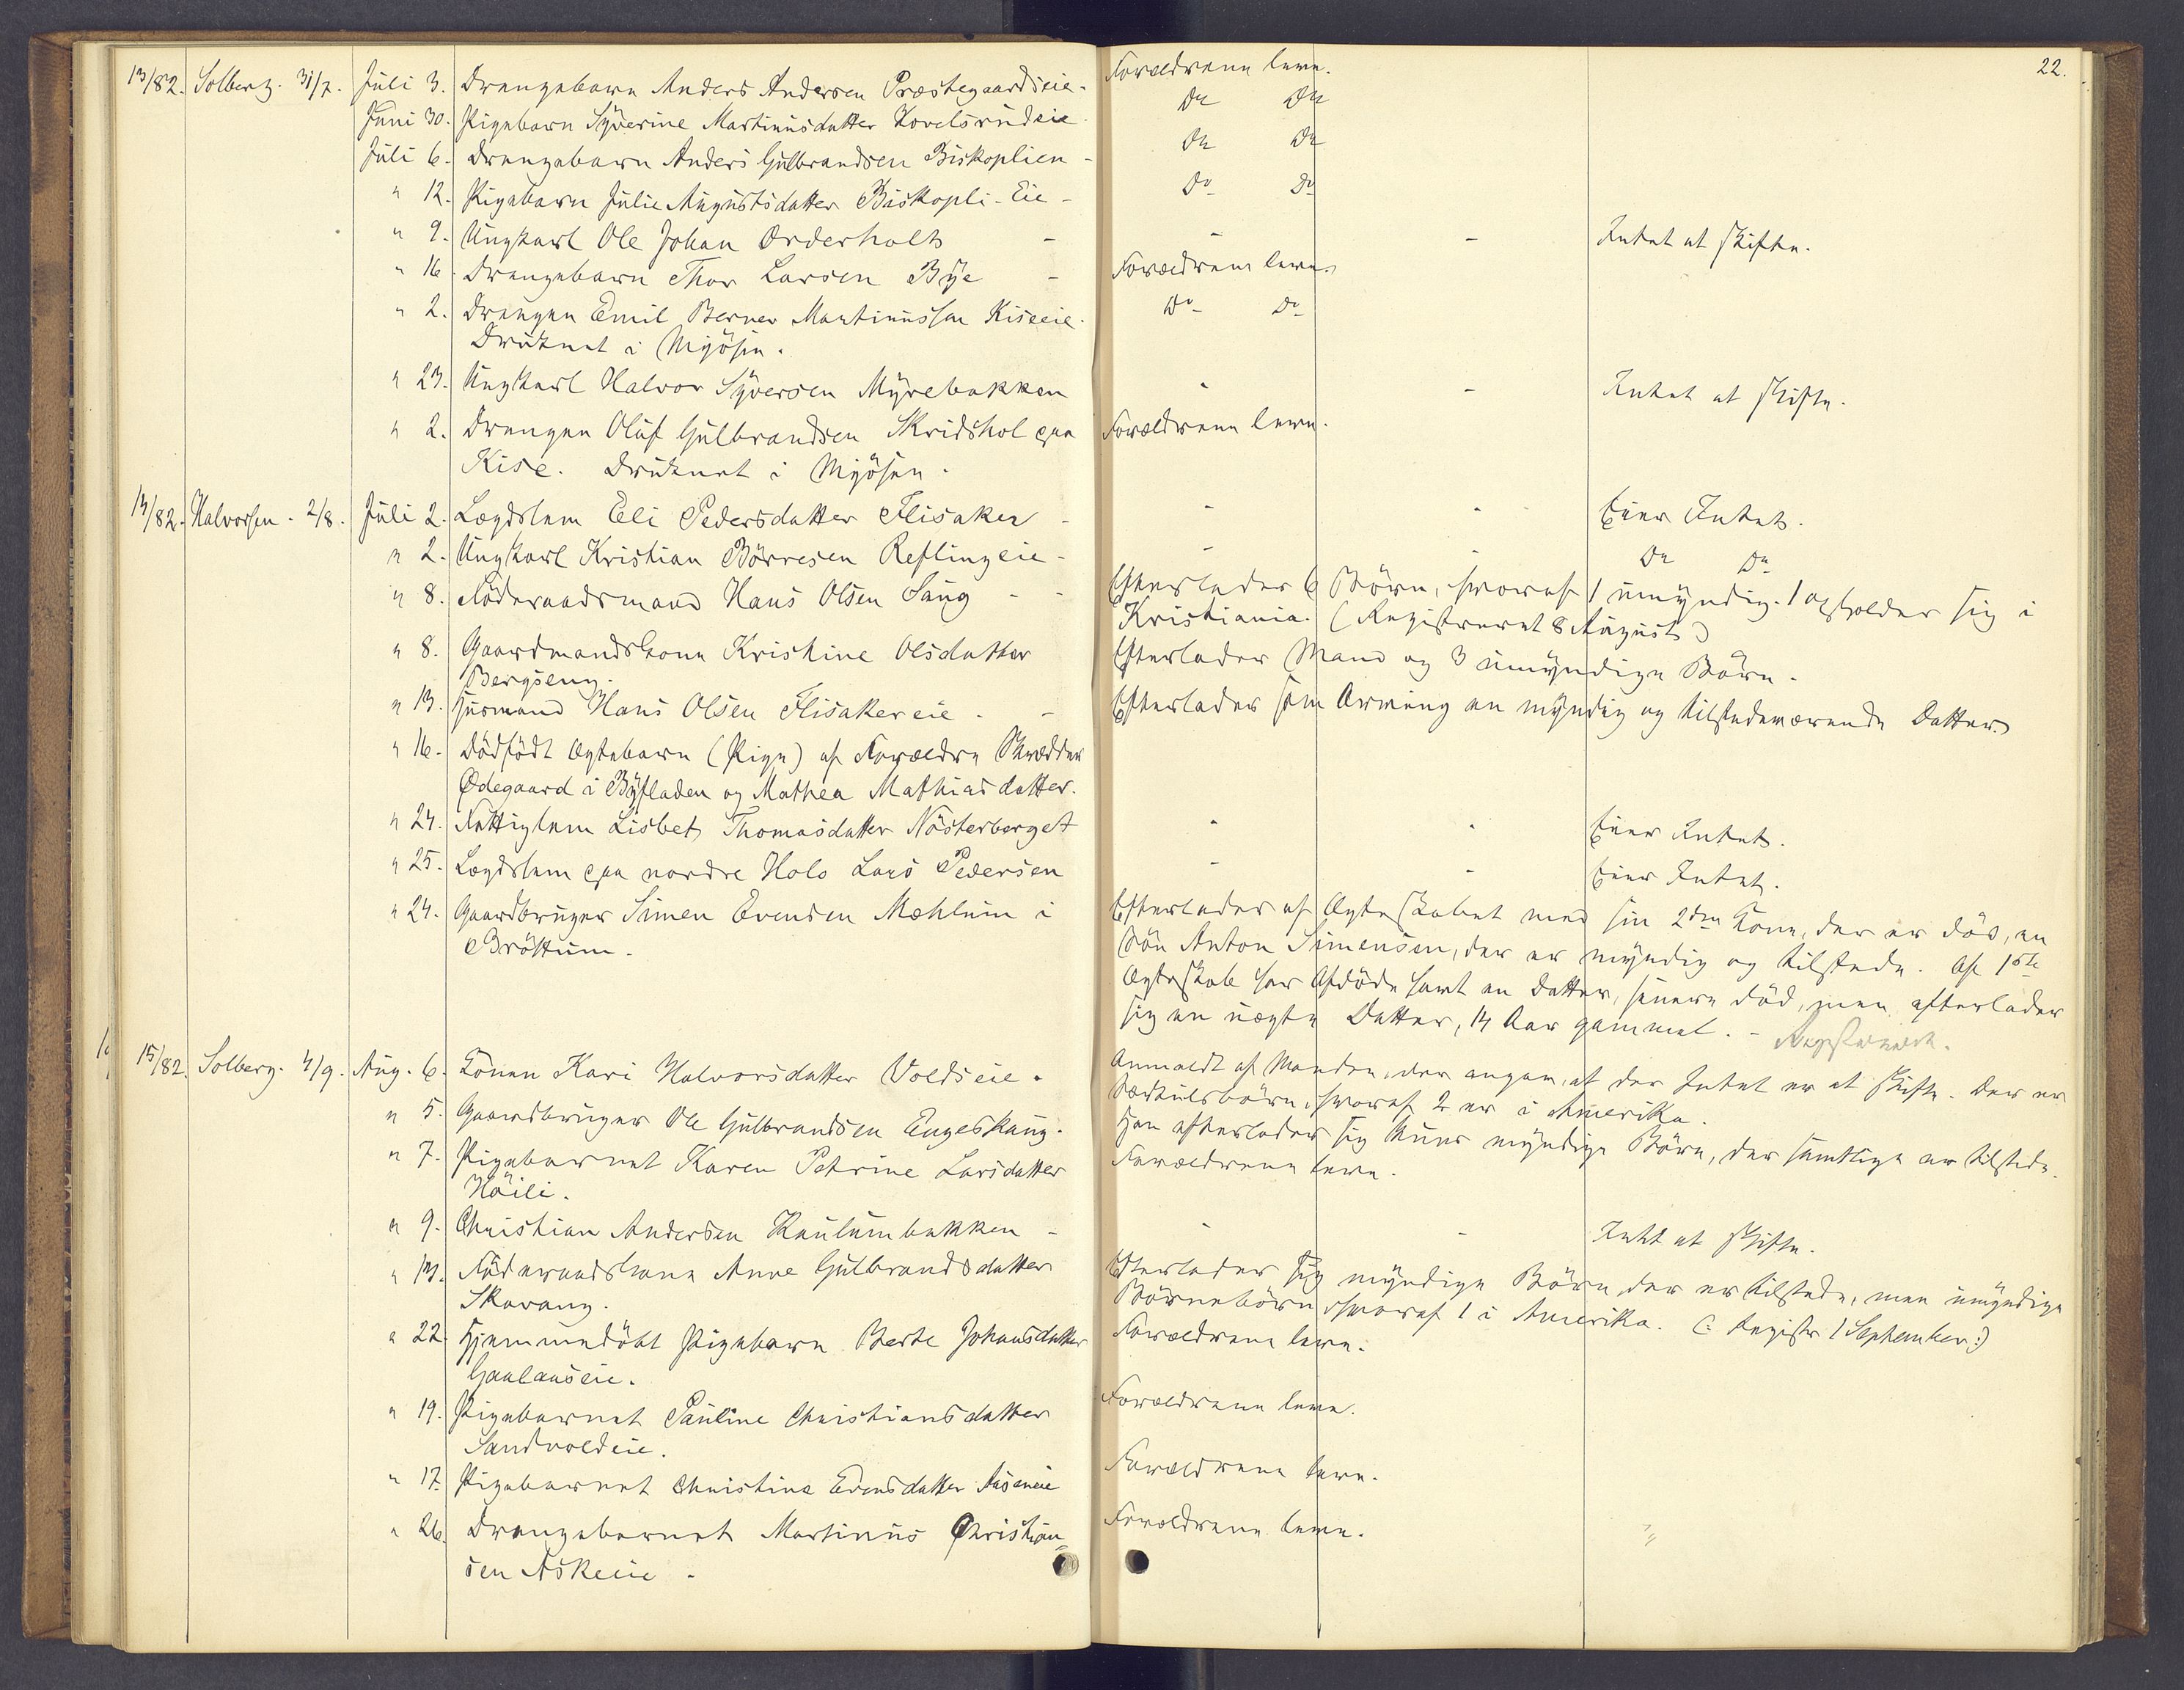 22.
13/82. Solberg. 31/7. Juli 3. Drengebarn Anders Andersen Præstegaardseie. Forældrene leve.
Juni 30. Pigebarn Syverine Martinusdatter Hovelsrudeie. Do Do
Juli 6. Drengebarn Anders Gulbrandsen Biskoplien - Do Do
" 12. Pigebarn Julie Augustsdatter Biskopli-Eie - Do Do
" 9. Ungkarl Ole Johan Orderholt - - - Intet at skifte.
" 16. Drengebarn Thor Larsen Bye - Forældrene leve.
" 2. Drengen Emil Berner Martinussen Kiseeie. Do Do
Druknet i Mjösen.
" 23. Ungkarl Halvor Syversen Myrebakken - - Intet at skifte.
" 2. Drengen Oluf Gulbrandsen Skridshol paa Forældrene leve.
Kise. Druknet i Mjösen.
14/82. Halvorsen. 2/8. Juli 2. Lægdslem Eli Pedersdatter Flisaker - - - Eier Intet.
" 2. Ungkarl Kristian Börresen Reflingeie - - - Do Do
" 8. Föderaadsmand Hans Olsen Saug - - Efterlader 6 Börn, hvoraf 1 umyndig. 1 opholder sig i
Kristiania. (Registreret 8 August)
" 8. Gaardmandskone Kristine Olsdatter Efterlader Mand og 3 umyndige Börn.
Bergseng.
" 13. Husmand Hans Olsen Flisakereie. - Efterlader som Arving en myndig og tilstedeværende Datter.
" 16. Dödfödt Ægtebarn (Pige) af Forældre Skrædder
Ödegaard i Byfladen og Mathea Mathiasdatter.
" 24. Fattiglem Lisbet Thomasdatter Nösterberget - - Eier Intet.
" 25. Lægdslem paa nordre Holo Lars Pedersen - - Eier Intet.
" 24. Gaardbruger Simen Evensen Mæhlum i Efterlader af Ægteskabet med sin 2den Kone, der er död, en
Bröttum. Sön Anton Simensen, der er myndig og tilstede. Af 1ste
Ægteskab har Afdöde havt en Datter, senere död, men efterlader
sig en uægte Datter, 14 Aar gammel. - Registreret.
15/82. Solberg. 4/9. Aug. 6. Konen Kari Halvorsdatter Voldseie. Anmeldt af Manden, der angav, at der Intet er at skifte. Der er
Særkulsbörn, hvoraf 2 er i Amerika.
" 5. Gaardbruger Ole Gulbrandsen Engeskaug. Han efterlader sig kuns myndige Börn, der samtlige er tilstede.
" 7. Pigebarnet Karen Petrine Larsdatter Forældrene leve.
Höili.
" 9. Christian Andersen Kaulumbakken - - - Intet at skifte.
" 14. Föderaadskone Anne Gulbrandsdatter Efterlader sig myndige Börn, der er tilstede, men umyndige
Skavang. Börnebörn, hvoraf 1 i Amerika. (: Registr 1 September :)
" 22. Hjemmedöbt Pigebarn Berte Johansdatter Forældrene leve.
Gaalauseie.
" 19. Pigebarnet Pauline Christiansdatter Forældrene leve.
Sandvoldeie.
" 17. Pigebarnet Christine Evensdatter Aaseneie Forældrene leve.
" 26. Drengebarnet Martinus Christian= Forældrene leve.
sen Askeeie -